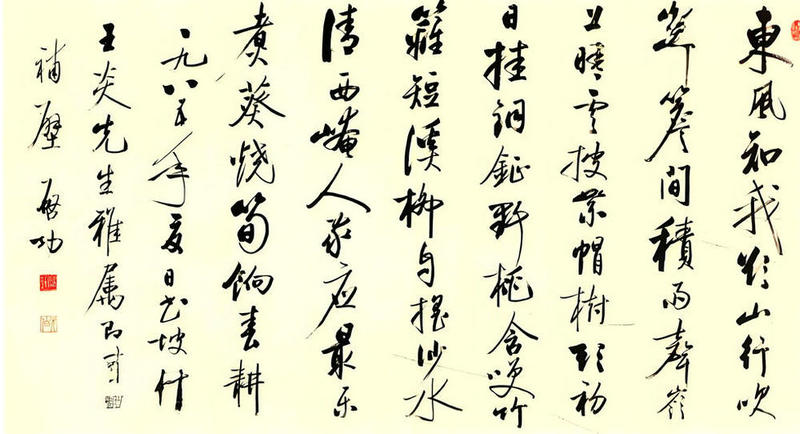 東風知我欲山行吹
斷簷間積雨聲嶺
上晴雲披絮帽樹頭初
日挂銅鉦野桃含咲竹
籬短溪柳自搖沙水
清西崦人家应最乐
煮葵燒筍餉春耕
一九八五年夏日书坡什
王炎先生雅属即
補壁 啟功